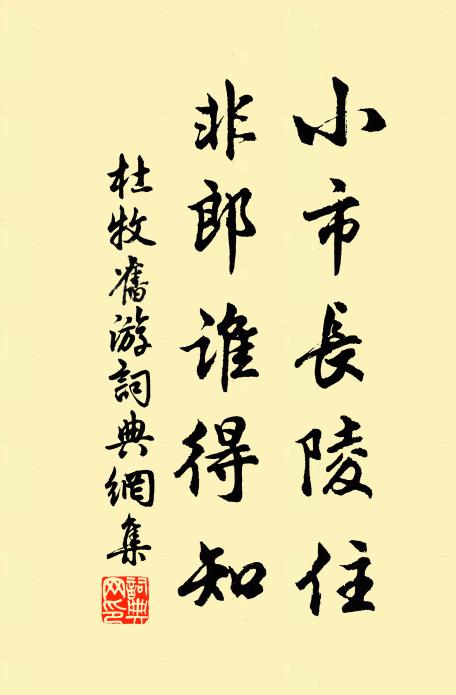 小市長陵住
非郎誰得知
杜牧舊游詞典網集
詞典網印